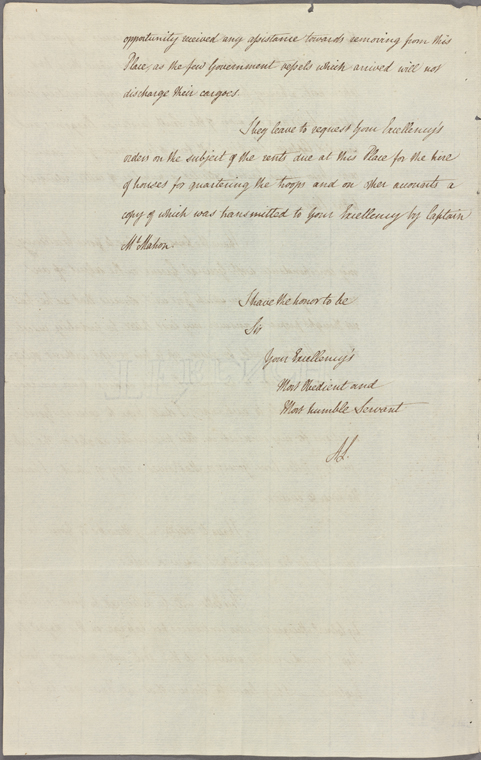 opportunity received any assistance towards removing from this
Place, as the few Government vessels which arrived will not
discharge their cargoes.
I beg leave to request Your Excellency's
orders on the subject of the rents due at this Place for the hire
of houses for quartering the troops and on other accounts a
copy of which was transmitted to Your Excellency by Captain
McMahon.
I have the honor to be
Sir
Your Excellency's
Most Obedient and
Most humble Servant
AL.